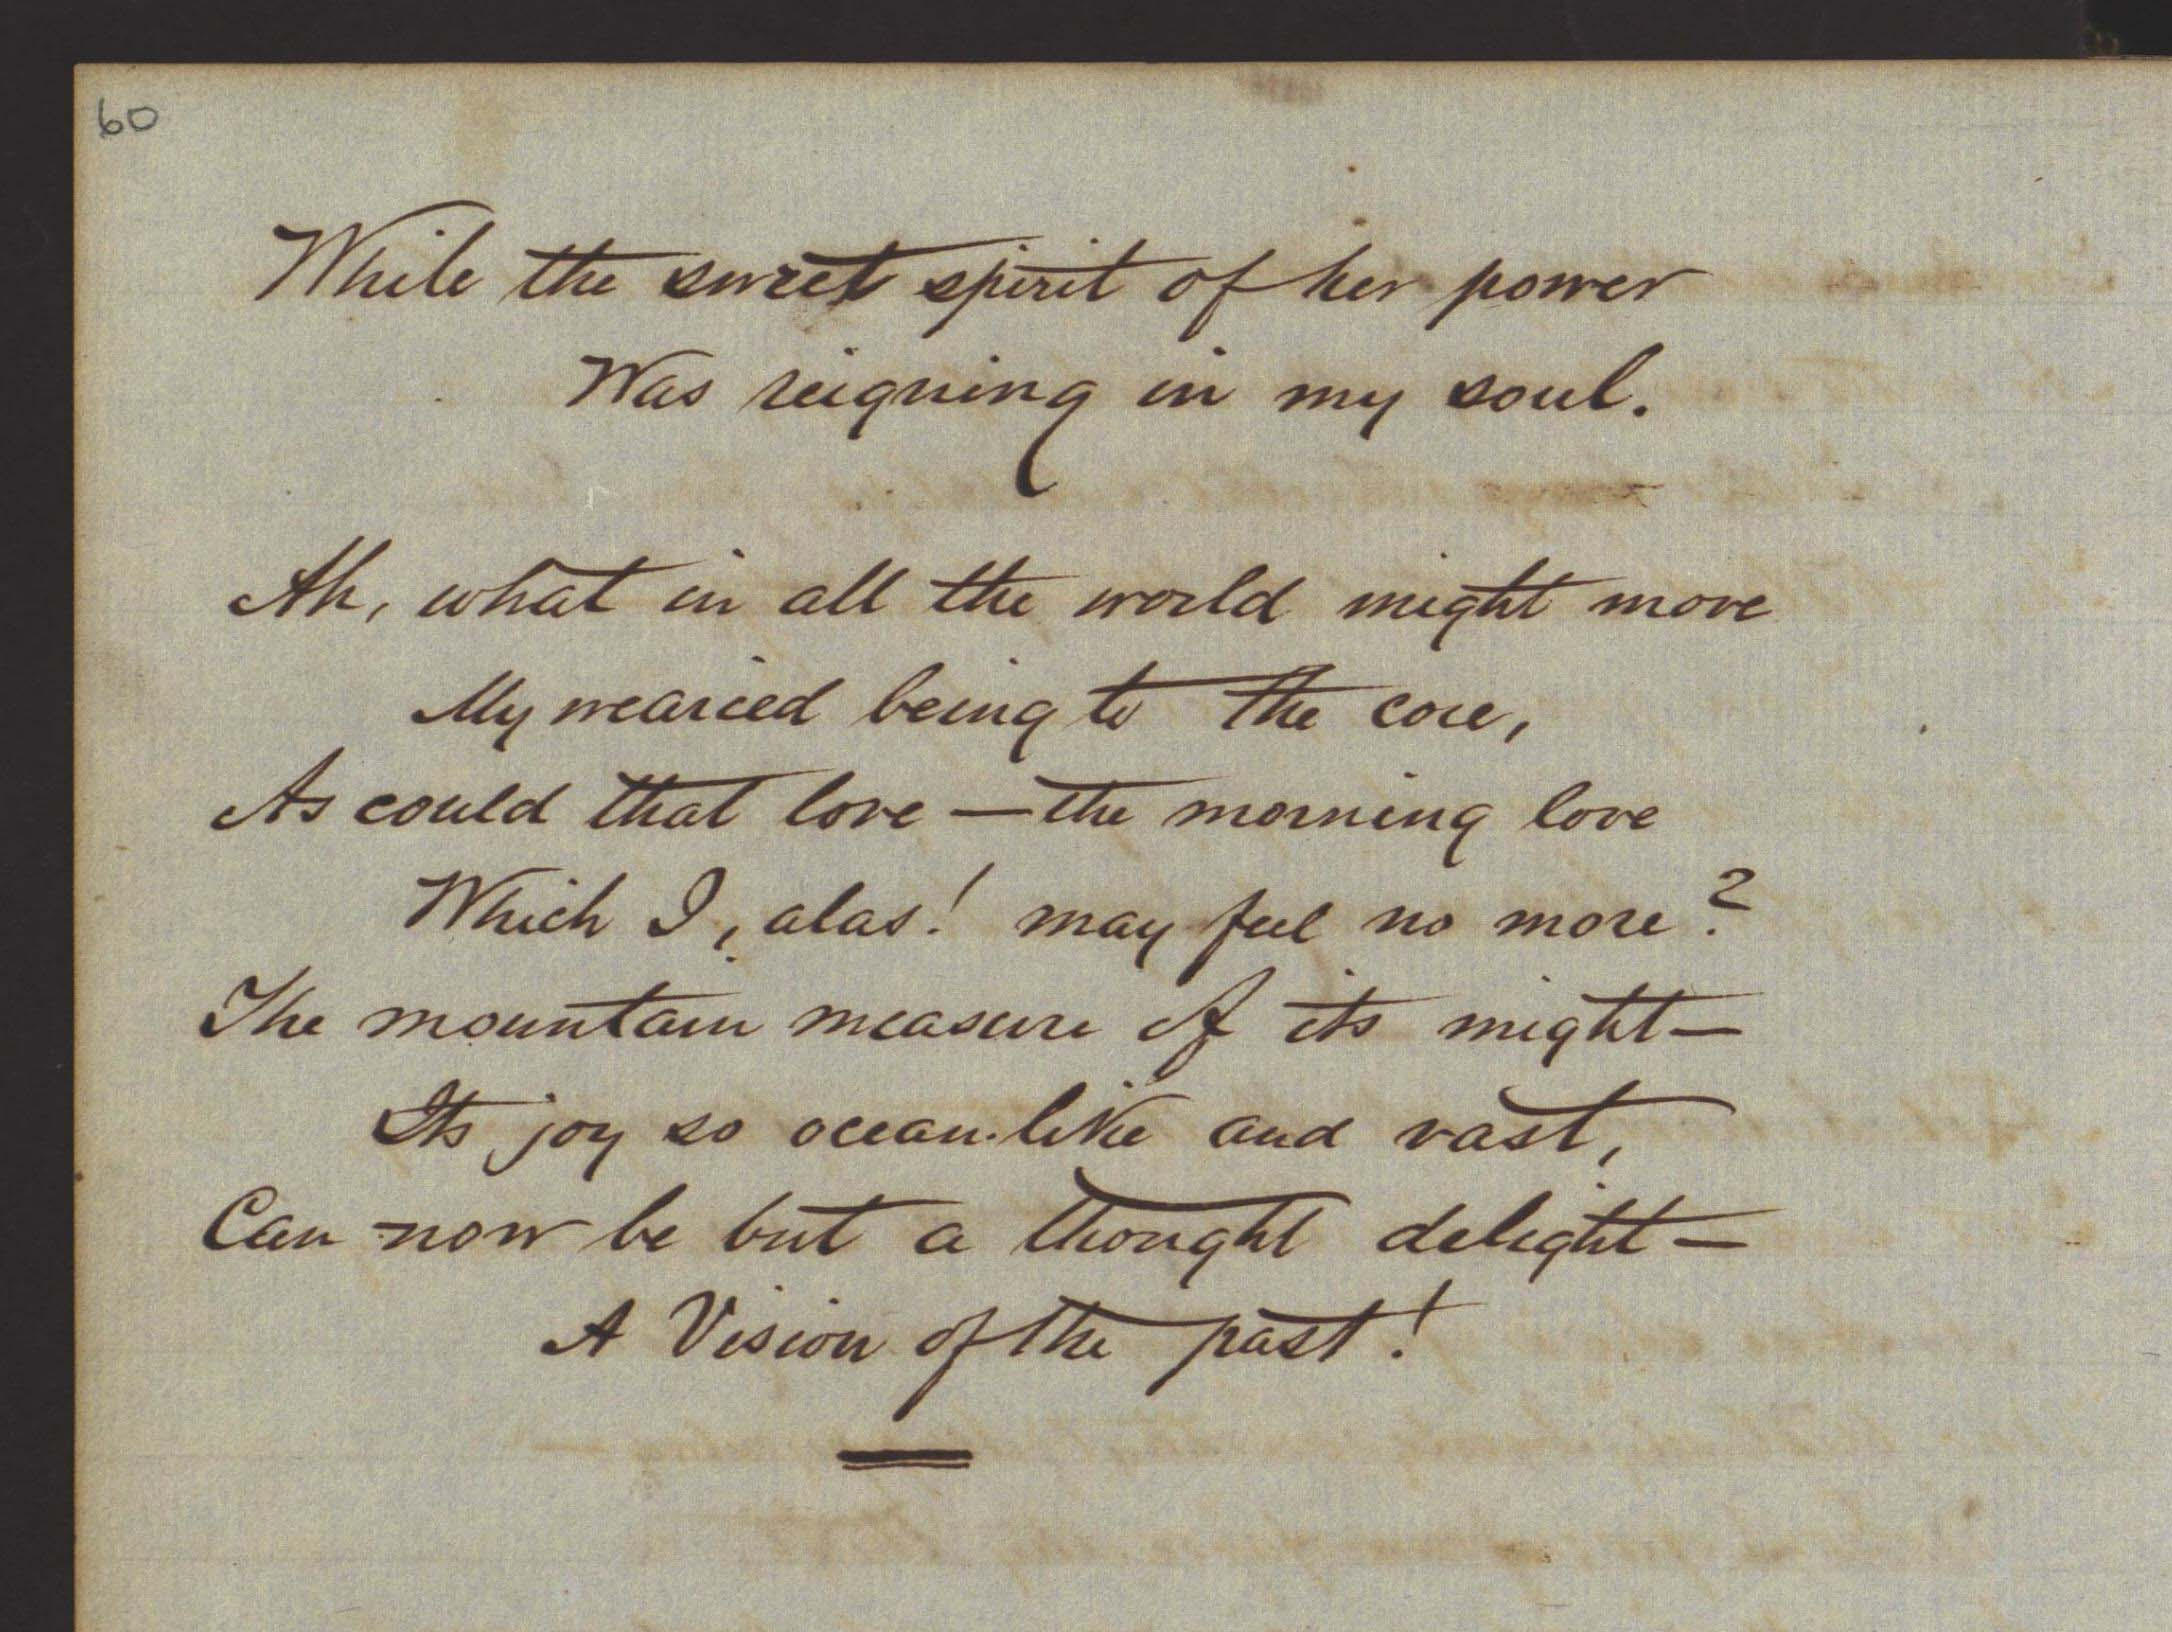 60
While the sweet spirit of her power
Was reigning in my soul.
Ah, what in all the world might move
My wearied being to the core,
As could that love — the morning love
Which I, alas! may feel no more?
The mountain measure of its might —
Its joy so ocean-like and vast,
Can now be but a thought delight —
A Vision of the past!